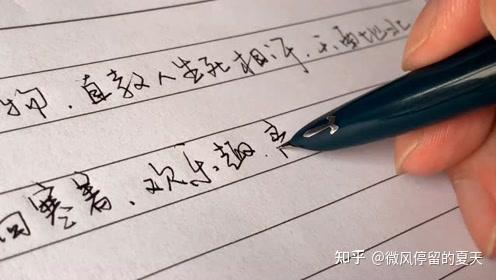 物，直教人生死相许，天南地北
回寒暑、欢乐趣，
知乎 @微风停留的夏天